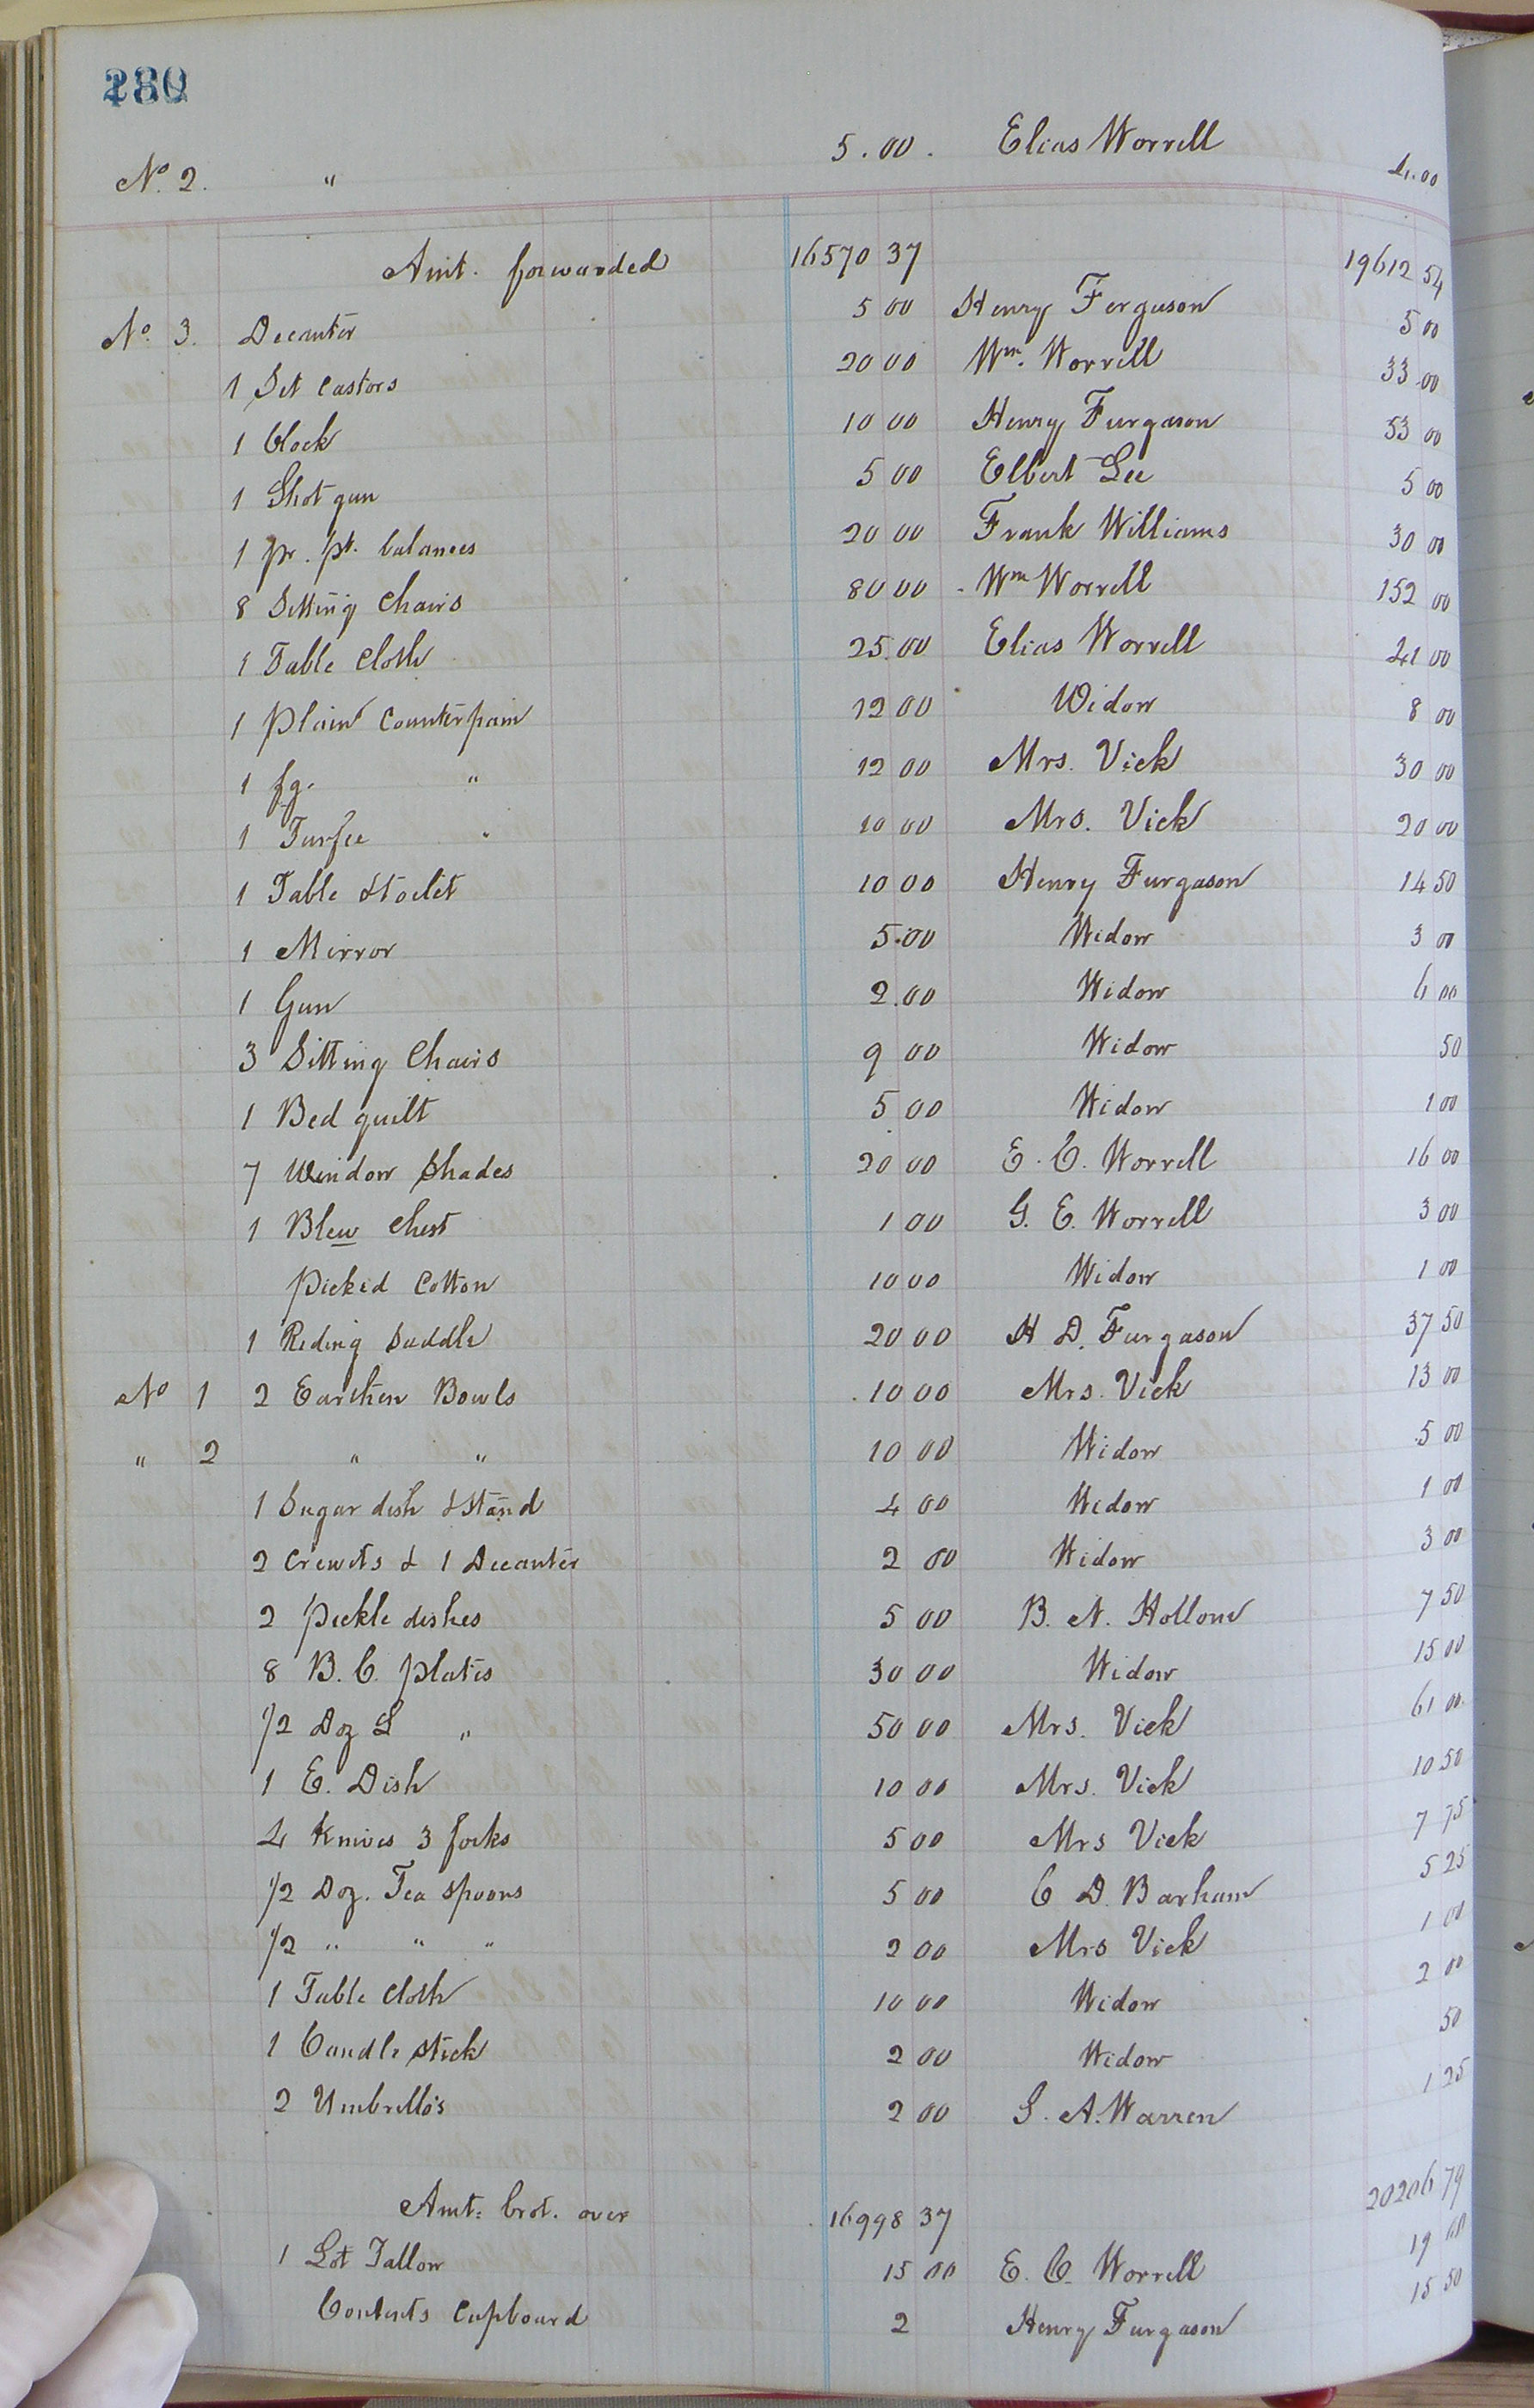 280
No. 2. " 5.00. Elias Worrell 4.00
Amt. forwarded 16570 37 19612 54
No. 3. Decanter 5 00 Henry Ferguson 5 00
1 Set Castors 20 00 Wm. Worrell 33 00
1 Clock 10 00 Henry Furgason 53 00
1 Shot gun 5 00 Elbert Lee 5 00
1 pr. pt. balances 20 00 Frank Williams 30 00
8 Sitting Chairs 80 00 Wm Worrell 152 00
1 Table Cloth 25.00 Elias Worrell 41 00
1 Plain Counterpain 12 00 Widow 8 00
1 fg. " 12 00 Mrs. Vick 30 00
1 " 10 00 Mrs. Vick 20 00
1 Table & toilet 10 00 Henry Furgason 14 50
1 Mirror 5.00 Widow 3 00
1 Gun 2.00 Widow 6 00
3 Sitting Chairs 9 00 Widow 50
1 Bed quilt 5 00 Widow 1 00
7 Window Shades 20 00 E. C. Worrell 16 00
1 Blew Chest 1 00 G. E. Worrell 3 00
Picked Cotton 10 00 Widow 1 00
1 Riding Saddle 20 00 H D. Furgason 37 50
No 1 2 Earthen Bowls 10 00 Mrs. Vick 13 00
" 2 " " 10 00 Widow 5 00
1 Sugar dish & Stand 4 00 Widow 1 00
2 Crewits & 1 Decanter 2 00 Widow 3 00
2 Pickle dishes 5 00 B. N. Hollond 7 50
8 B. C. plates 30 00 Widow 15 00
1/2 Doz L " 50 00 Mrs. Vick 61 00
1 E. Dish 10 00 Mrs. Vick 10 50
4 Knives 3 forks 5 00 Mrs Vick 7 75
1/2 Doz. Tea Spoons 5 00 C D. Barham 5 25
1/2 " " " 2 00 Mrs Vick 1 00
1 Table Cloth 10 00 Widow 2 00
1 Candle Stick 2 00 Widow 50
2 Umbrello's 2 00 S. A. Warren 1 25
Amt: brot. over 16998 37 20206 79
1 Lot Tallow 15 00 E. C. Worrell 19 00
Contents Cupboard 2 Henry Furgason 15 50